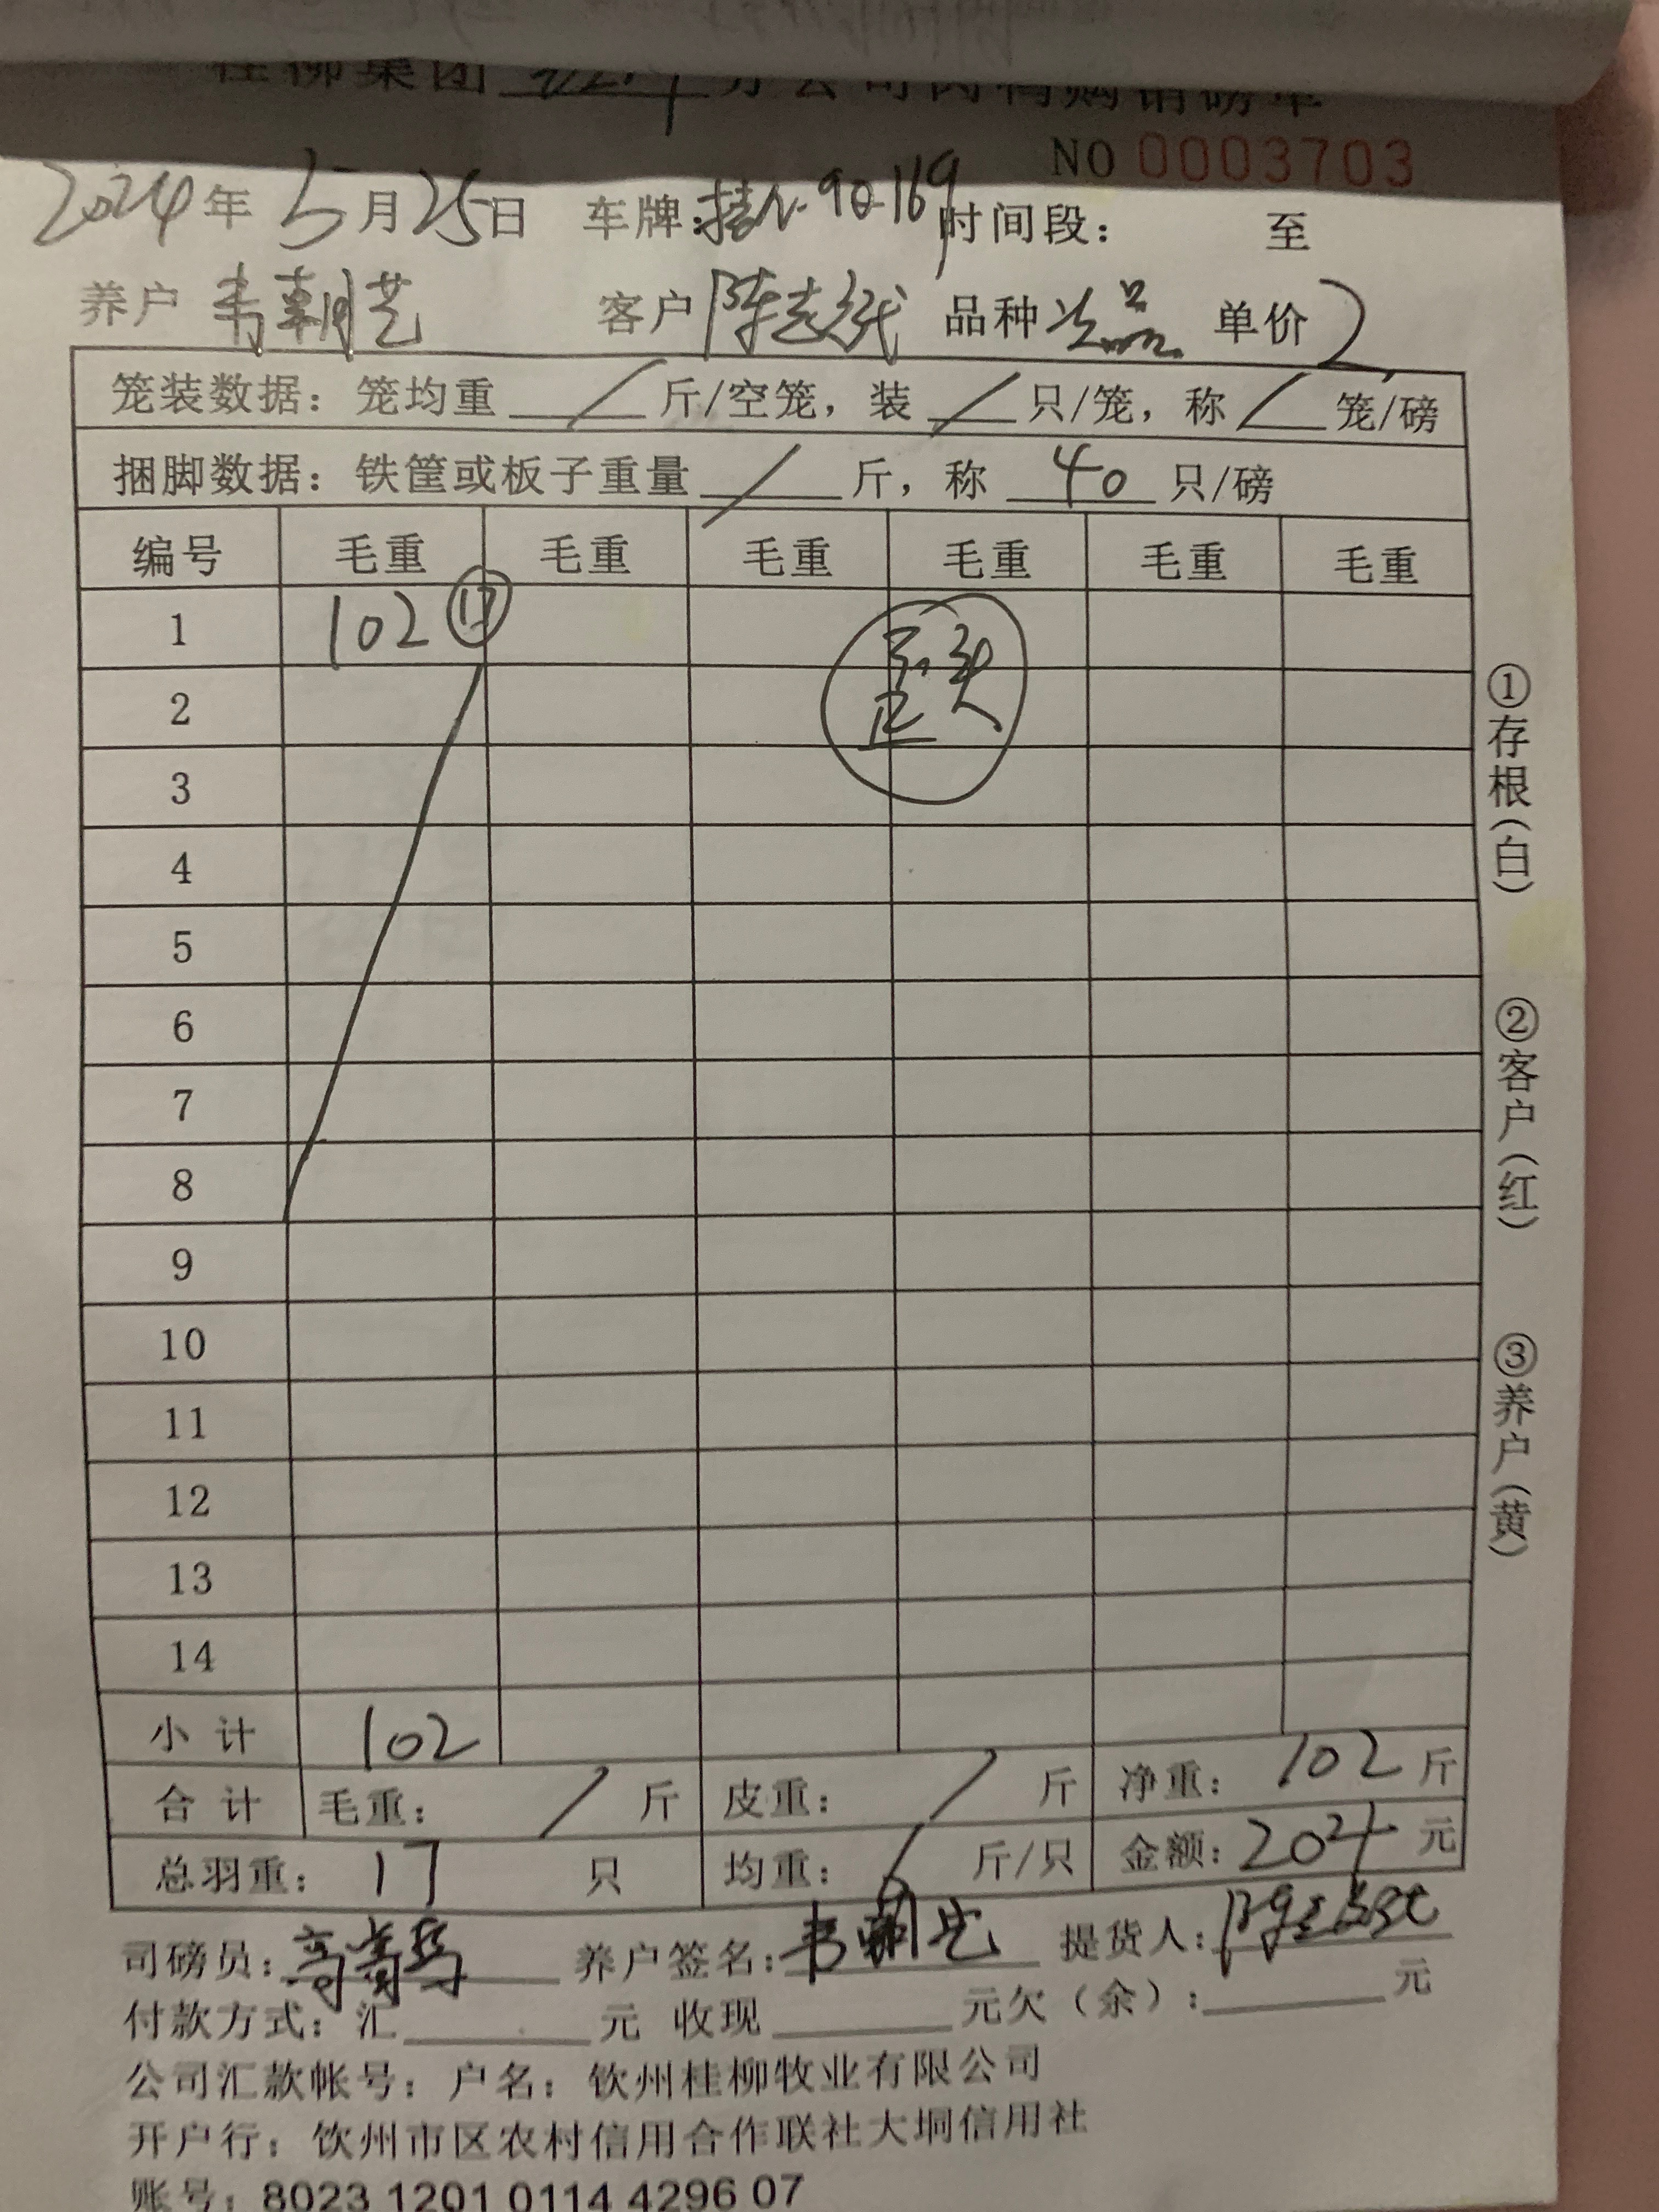 桂柳集团 钦州 分公司肉鸭购销磅单
NO 0003703
2024年 5月 25日 车牌:桂N·90169 时间段: 至
养户 韦朝艺 客户 陈志 品种 次品 单价 2
笼装数据: 笼均重 / 斤/空笼, 装 / 只/笼, 称 / 笼/磅
捆脚数据: 铁筐或板子重量 / 斤, 称 40 只/磅
编号 毛重 毛重 毛重 毛重 毛重 毛重
1 102 ⑰
2
3
4
5
6
7
8
9
10
11
12
13
14
小计 102
合计 毛重: / 斤 皮重: / 斤 净重: 102 斤
总羽重: 17 只 均重: / 斤/只 金额: 204 元
司磅员: 养户签名: 韦朝艺 提货人: 陈志
付款方式: 汇 元 收现 元欠(余): 元
公司汇款帐号: 户名: 钦州桂柳牧业有限公司
开户行: 钦州市区农村信用合作联社大垌信用社
账号: 8023 1201 0114 4296 07
①存根(白)
②客户(红)
③养户(黄)